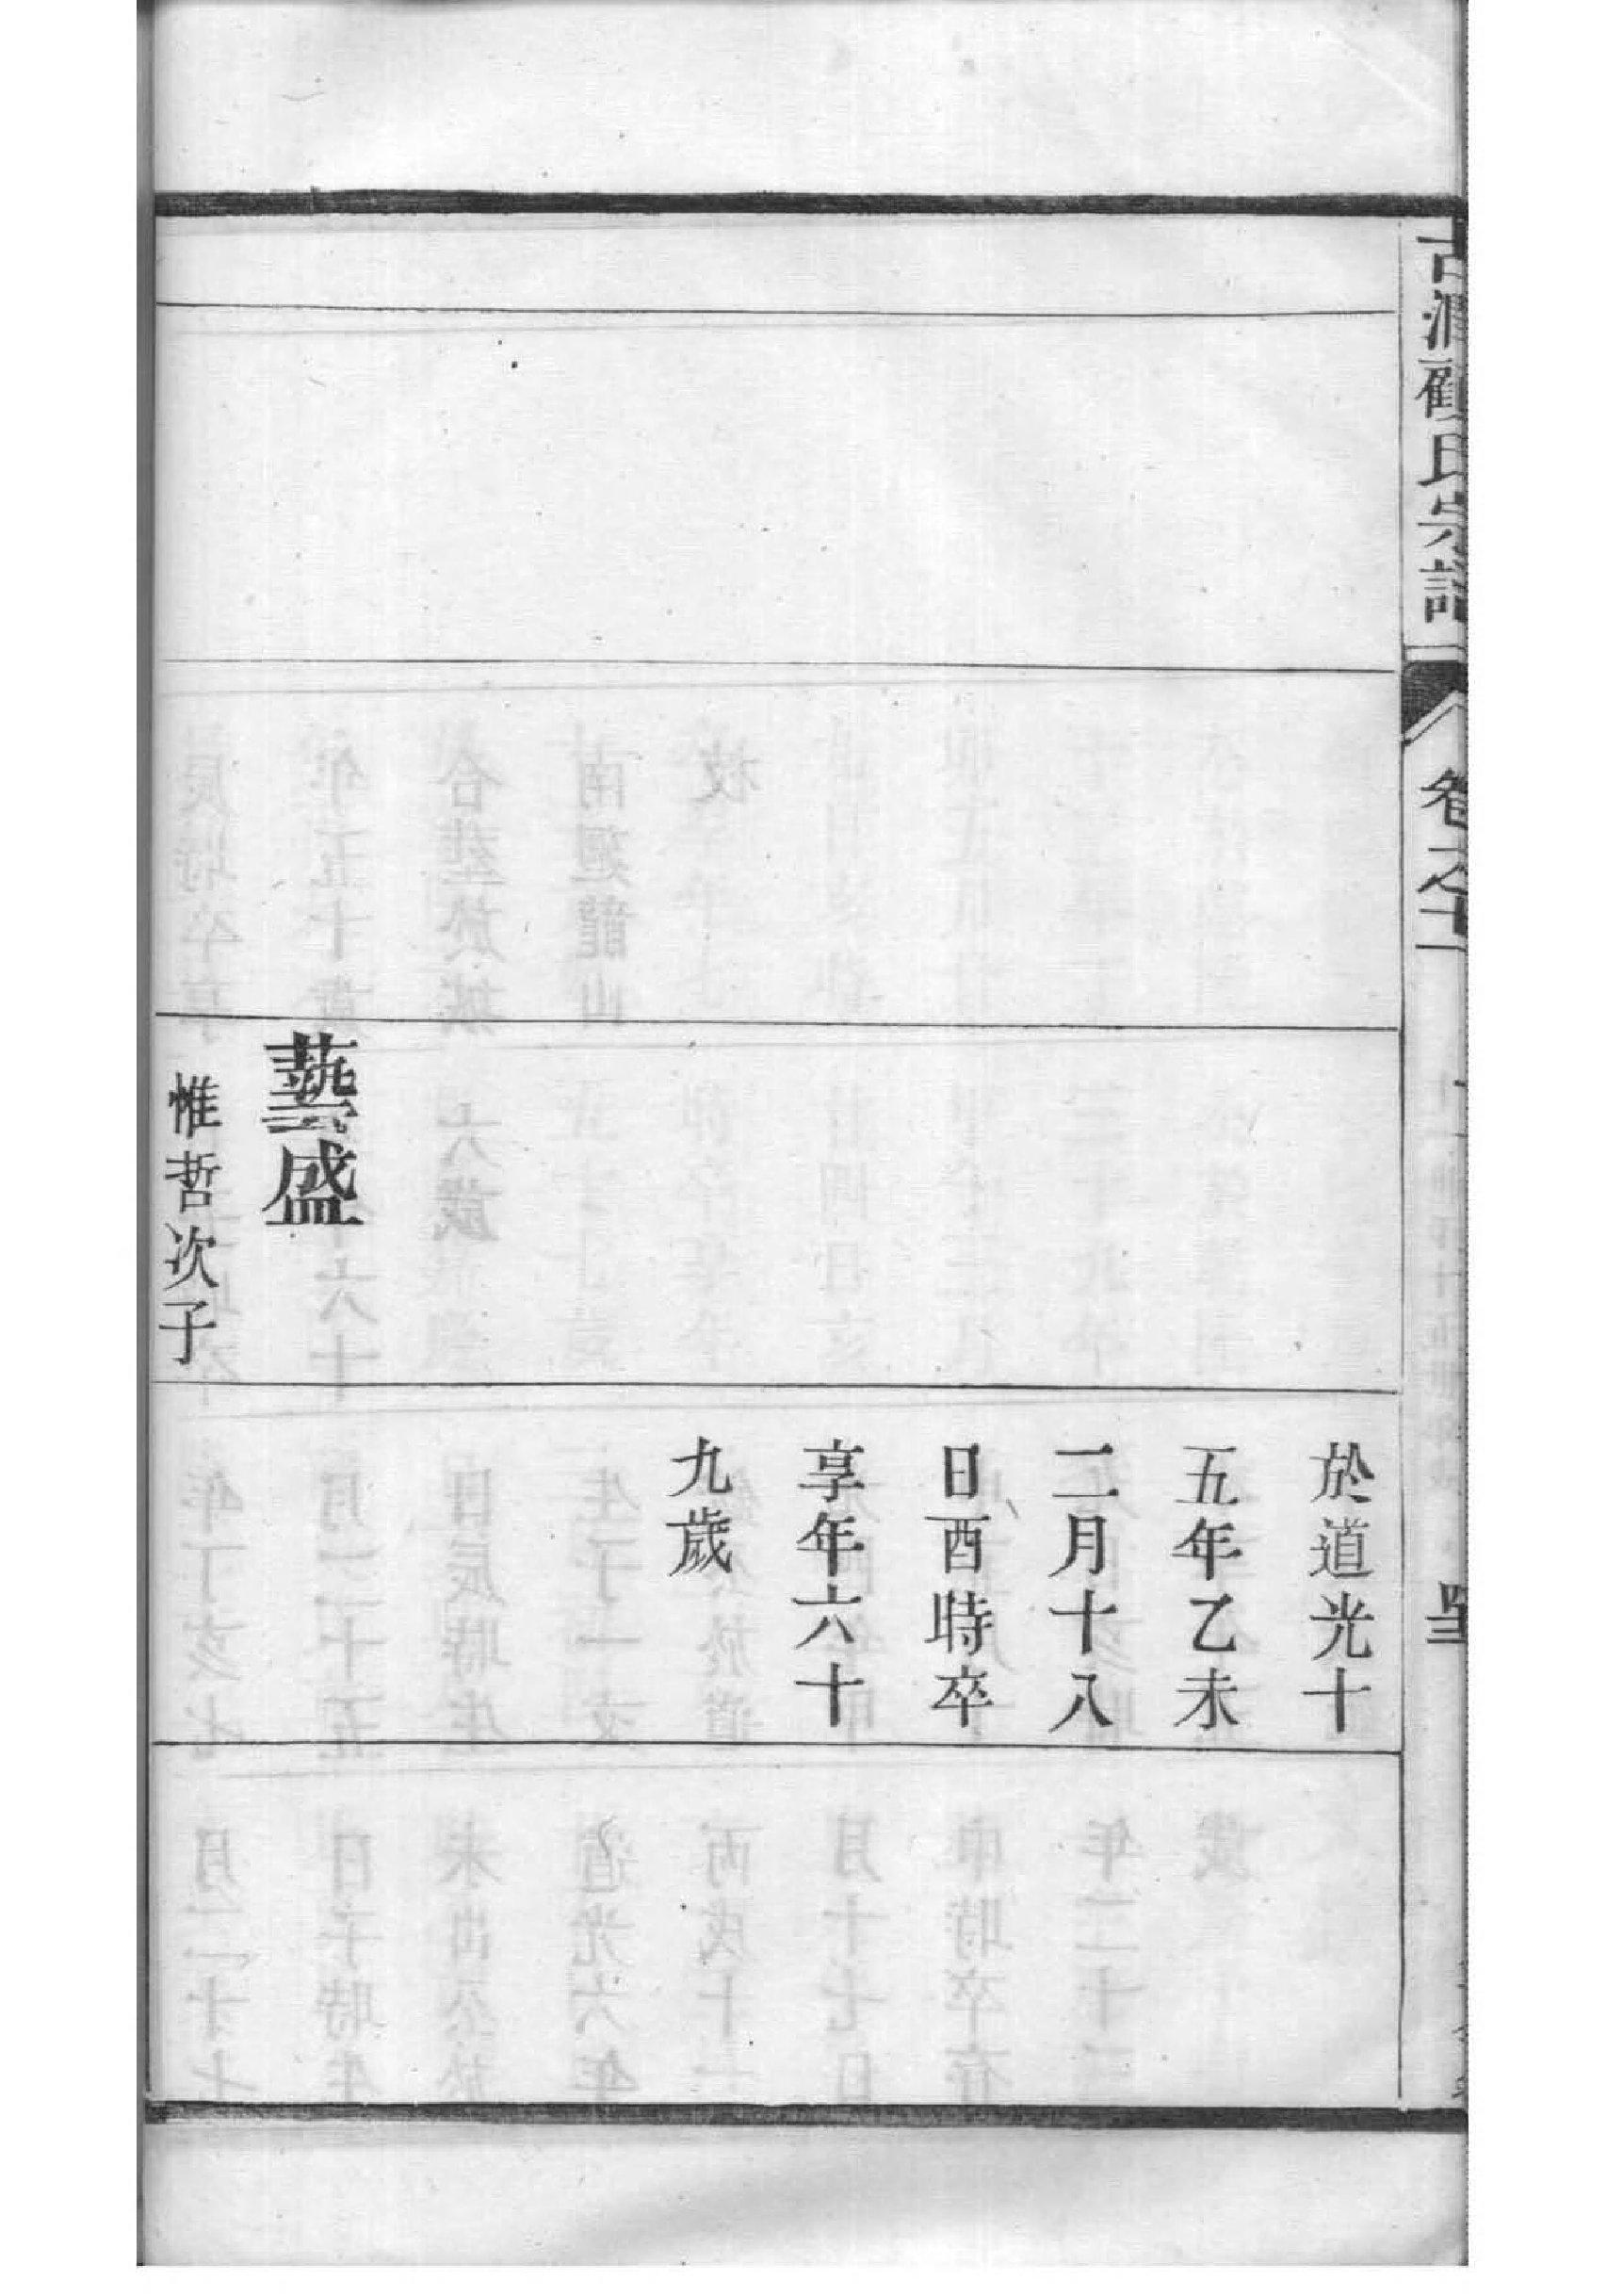 古潤顧氏宗譜
卷之十
藝盛
惟哲次子
於道光十
五年乙未
二月十八
日酉時卒
享年六十
九歲